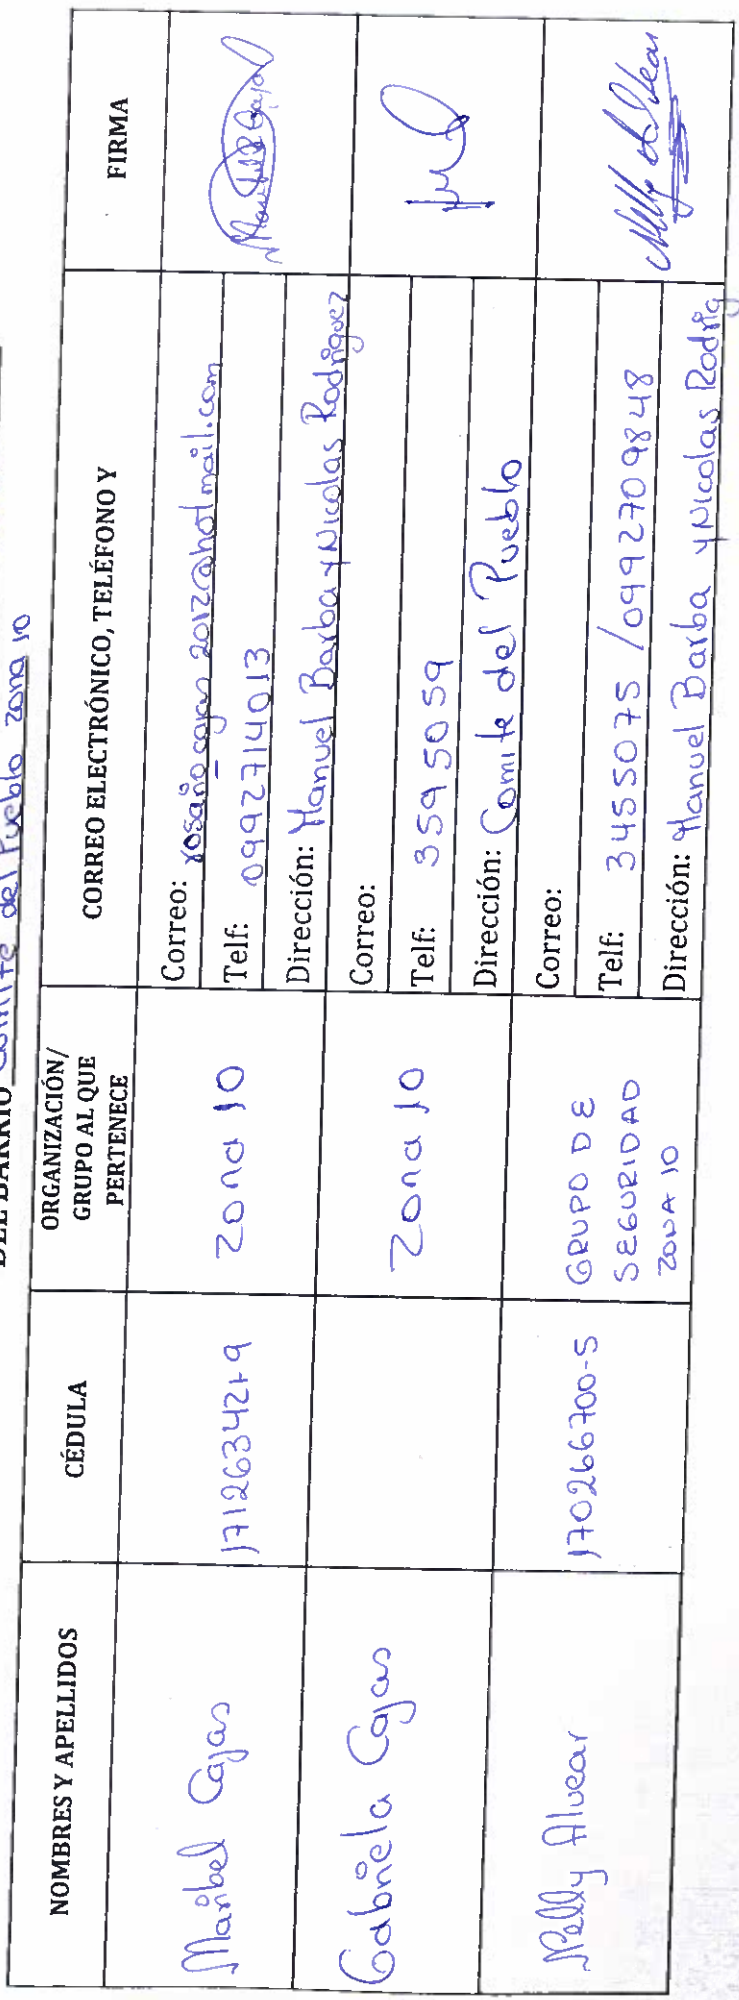 DEL BARRIO Comite del Pueblo zona 10
NOMBRES Y APELLIDOS
CÉDULA
ORGANIZACIÓN/
GRUPO AL QUE
PERTENECE
CORREO ELECTRÓNICO, TELÉFONO Y
FIRMA
Maribel Cajas
1712634219
Zona 10
Correo: rosariocajas2012@hotmail.com
Telf: 0992714013
Dirección: Manuel Barba y Nicolas Rodriguez
Gabriela Cajas
Zona 10
Correo:
Telf: 3595059
Dirección: Comite del Pueblo
Nelly Alvear
170266700-5
GRUPO DE
SEGURIDAD
ZONA 10
Correo:
Telf: 3455075 / 0992709848
Dirección: Manuel Barba y Nicolas Rodrig
Nelly de Alvear